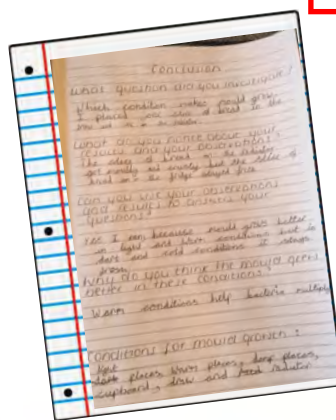 Conclusion
What question did you investigate?
Which condition makes mould grow.
I placed one slice of bread in the
one on a
What do you notice about your
results and your observations?
The slices of bread on the radiator
got mouldy but the slice of
bread in the fridge stayed fine
Can you use your observations
and results to answer your
questions?
Yes I can because mould grows better
in light and warm conditions but in
dark and cold conditions it
Why do you think the mould grew
better in these conditions?
Warm conditions help bacteria multiply
Conditions for mould growth:
places, warm places, damp places,
cupboard,